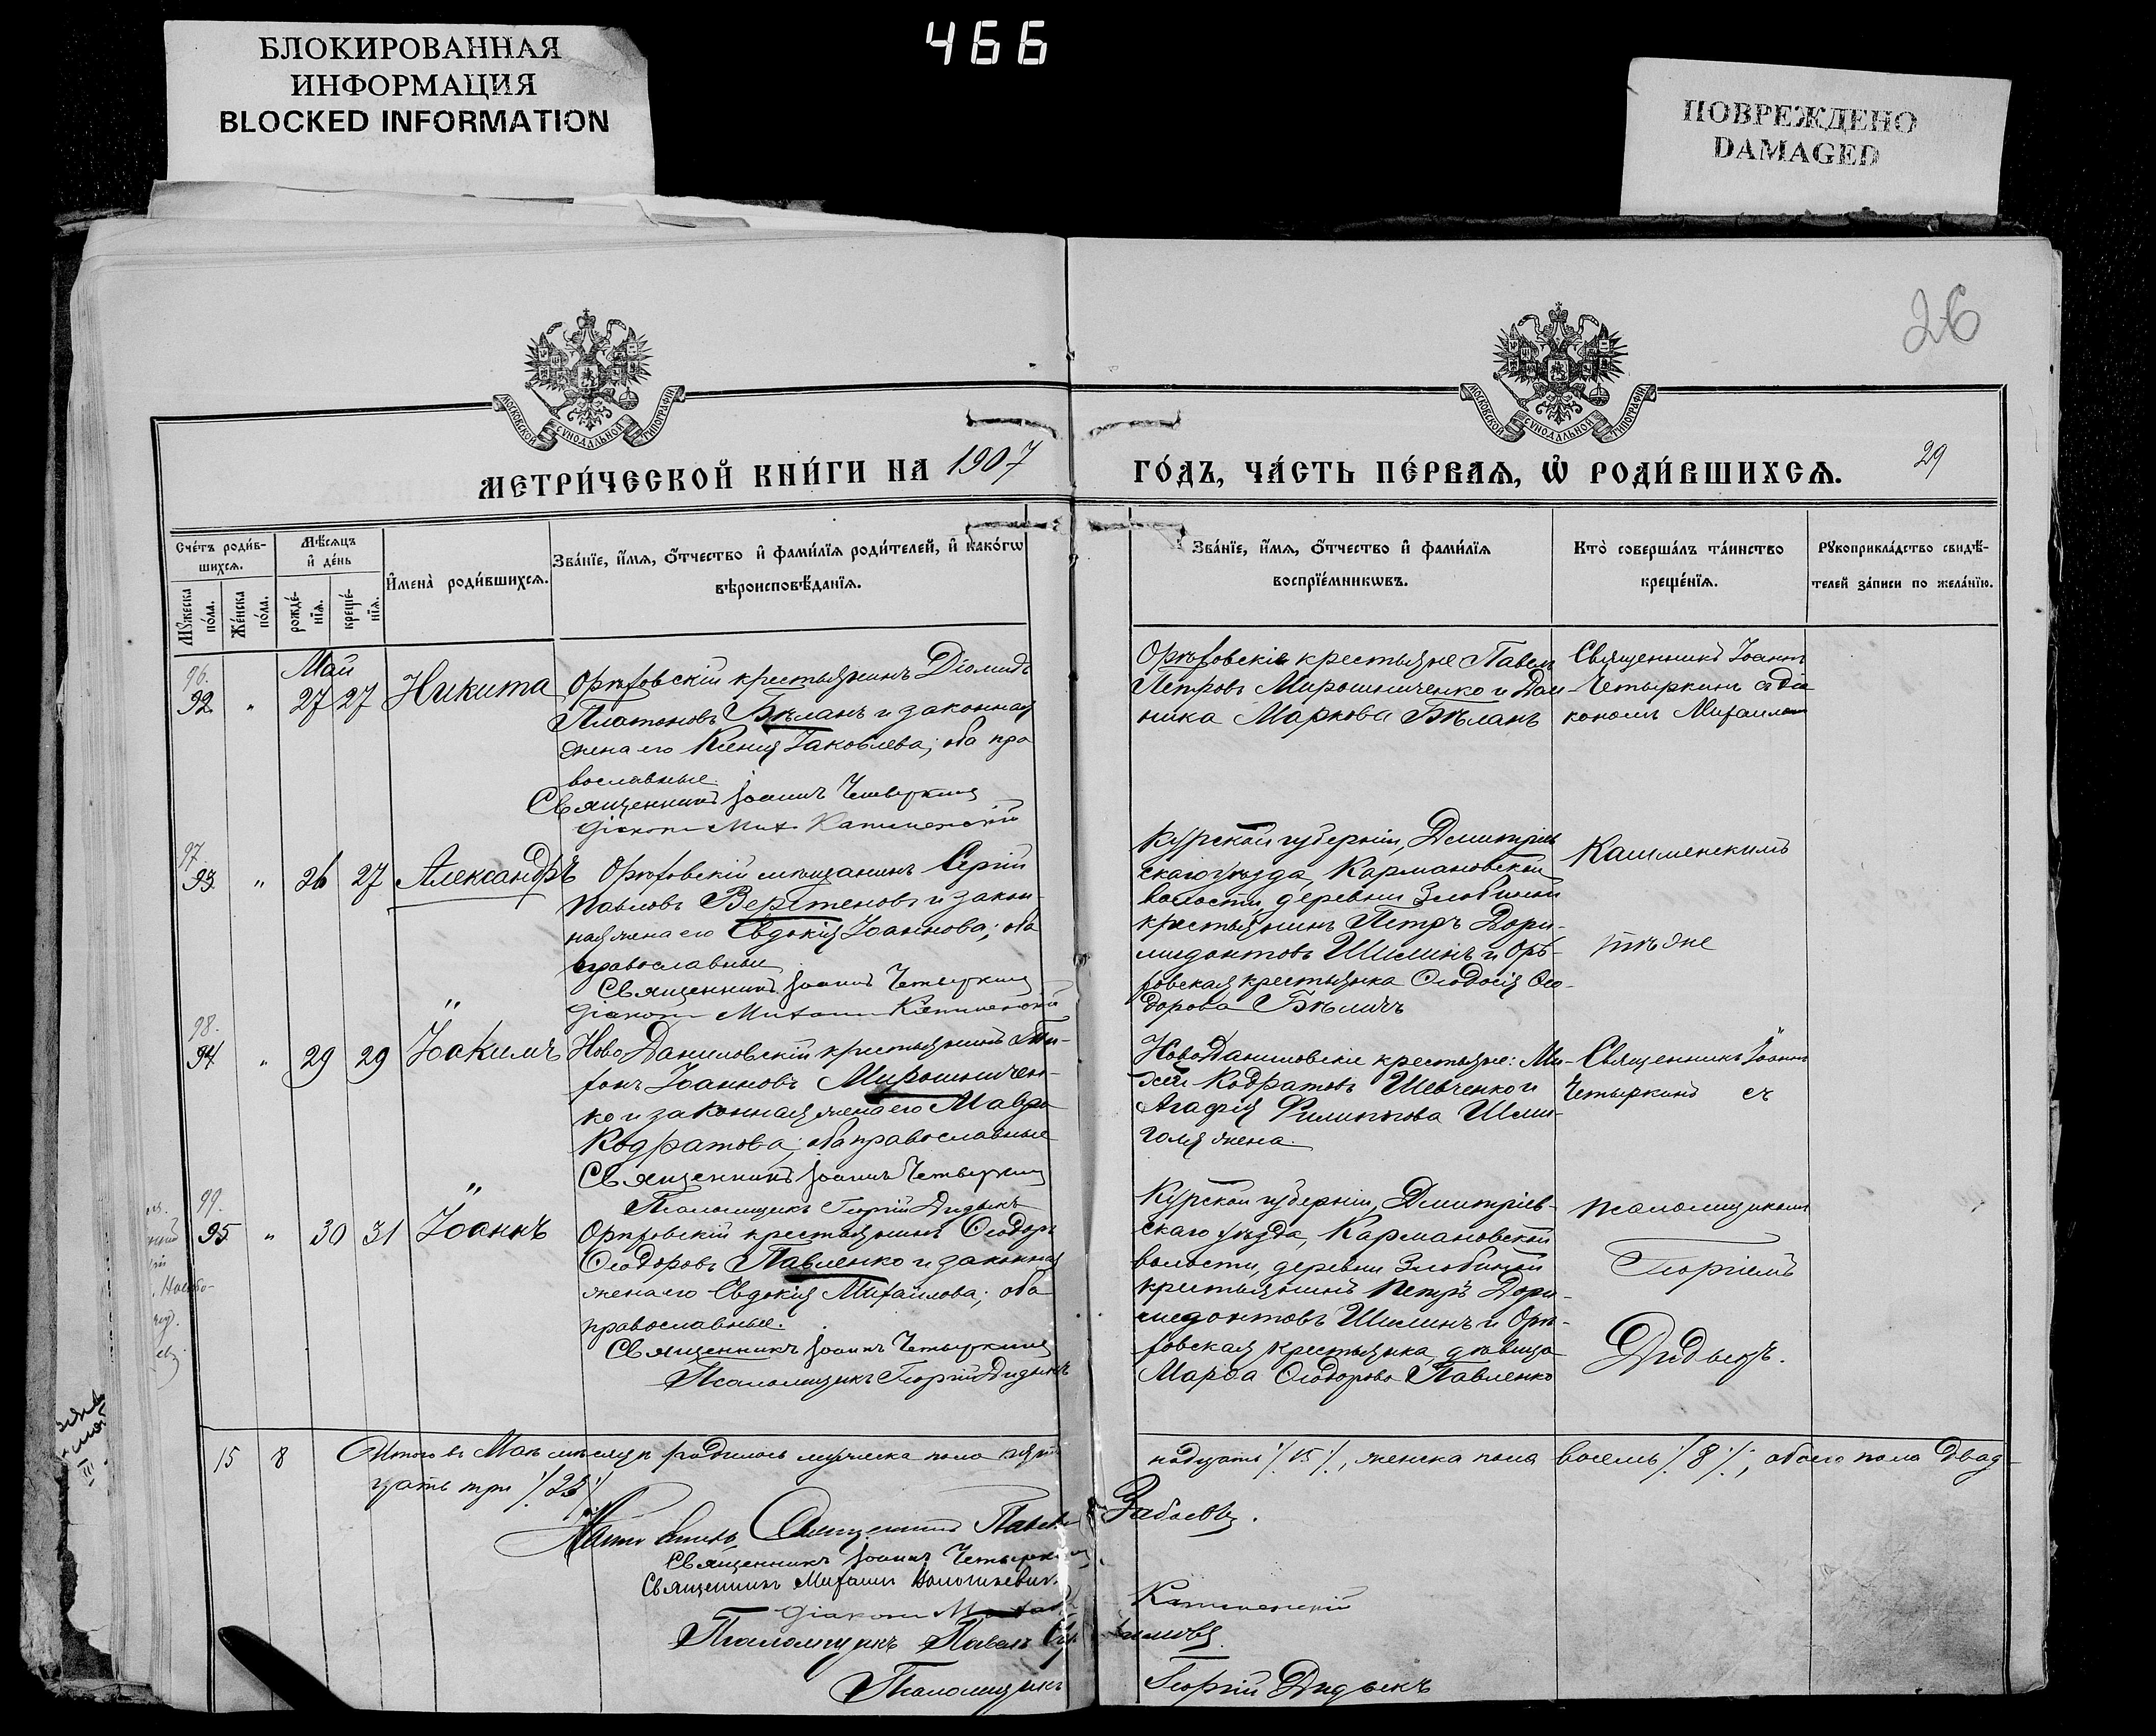 БЛОКИРОВАННАЯ
ИНФОРМАЦИЯ
BLOCKED INFORMATION
466
ПОВРЕЖДЕНО
DAMAGED
26
МОСКОВСКОЙ СѴНОДАЛЬНОЙ ТИПОГРАФІИ
МОСКОВСКОЙ СѴНОДАЛЬНОЙ ТИПОГРАФІИ
МЕТРИ́ЧЕСКОЙ КНИ́ГИ НА 1907
ГО́ДЪ, ЧА́СТЬ ПЕ́РВАѦ, Ѽ РОДИ́ВШИХСѦ.
29
Сче́тъ роди́в-
шихсѧ.
Мꙋ́жеска по́ла.
Же́нска по́ла.
Мѣ́сѧцъ
и҆ де́нь
рожде́-
нїѧ.
креще́-
нїѧ.
И҆мена̀ роди́вшихсѧ.
Зва́нїе, и҆́мѧ, о҆́тчество и҆ фами́лїѧ роди́телей, и҆ како́гѡ
вѣроисповѣ́данїѧ.
Зва́нїе, и҆́мѧ, о҆́тчество и҆ фами́лїѧ
воспрїе́мникѡвъ.
Кто̀ соверша́лъ та́инство
креще́нїѧ.
Рꙋкоприкла́дство свидѣ́-
телей за́писи по жела́нїю.
Май
96.
92 " 27 27 Никита
Орѣховскій крестьянинъ Діомидъ
Платоновъ Бѣланъ и законная
жена его Ксенія Іаковлева; оба пра
вославные.
Священникъ Іоаннъ Четыркинъ
Діаконъ Мих. Кашменскій
Орѣховскіе крестьяне Павелъ
Петровъ Мирошниченко и Дом
ника Маркова Бѣланъ
Священникъ Іоаннъ
Четыркинъ съ діа
кономъ Михаиломъ
97.
93 " 26 27 Александръ
Орѣховскій мѣщанинъ Сергій
Павловъ Верстеновъ и закон-
ная жена его Евдокія Іоаннова; оба
православные
Священникъ Іоаннъ Четыркинъ
Діаконъ Михаилъ Кашменскій
Курской губерніи, Дмитріев
скаго уѣзда, Кармановской
волости, деревни Злобиной
крестьянинъ Петръ Дори-
медонтовъ Шилинъ и Орѣ-
ховская крестьянка Ѳеодосія Ѳео-
дорова Бѣличъ
Кашменскимъ
тѣ же
98.
94 " 29 29 Іоакимъ
НовоДаниловскій крестьянинъ
Іоанновъ Мирошничен-
ко и законная жена его Мавра
Кодратова; оба православные
Священникъ Іоаннъ Четыркинъ
Псаломщикъ Георгій Дидыкъ
НовоДаниловскіе крестьяне: Ми-
Кодратовъ Шевченко и
Агафія Филиппова
жена.
Священникъ Іоаннъ
Четыркинъ съ
99.
95 " 30 31 Іоаннъ
Орѣховскій крестьянинъ Ѳеодоръ
Ѳеодоровъ Павленко и законная
жена его Евдокія Михаилова; оба
православные.
Священникъ Іоаннъ Четыркинъ
Псаломщикъ Георгій Дидыкъ
Курской губерніи, Дмитріев-
скаго уѣзда, Кармановской
волости, деревни Злобиной
крестьянинъ Петръ Дори-
медонтовъ Шилинъ и Орѣ-
ховская крестьянка, дѣвица
Марѳа Ѳеодорова Павленко
псаломщикомъ
Георгіемъ
Дидыкъ.
15 8 Итого въ Маѣ мѣсяцѣ родилось мужеска пола пят
надцать /15/, женска пола восемь /8/, обоего пола двад-
цать три /23/
Священникъ Павелъ Забаевъ.
Священникъ Іоаннъ Четыркинъ.
Священникъ Михаилъ
Діаконъ Михаилъ Кашменскій
Псаломщикъ Павелъ
Псаломщикъ Георгій Дидыкъ